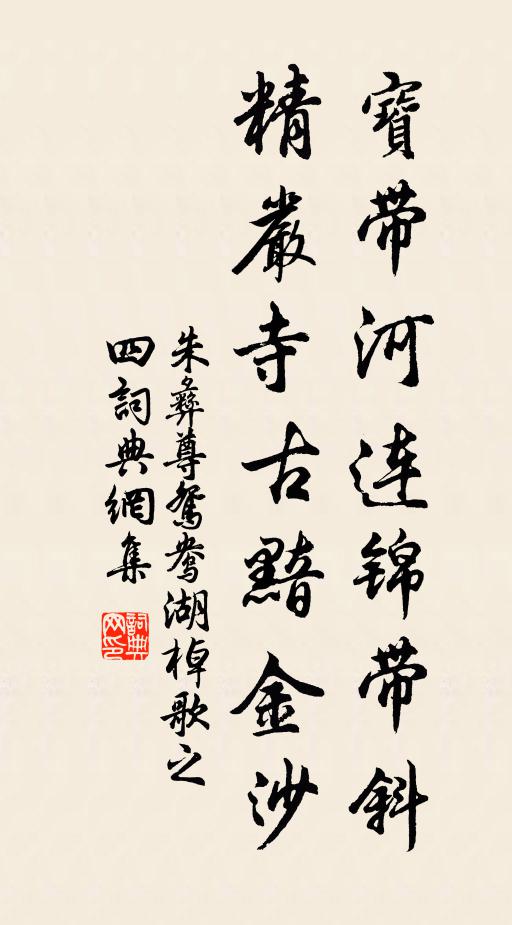 寶帶河連錦帶斜
精嚴寺古黯金沙
朱彝尊鴛鴦湖棹歌之
四詞典網集
詞典網印